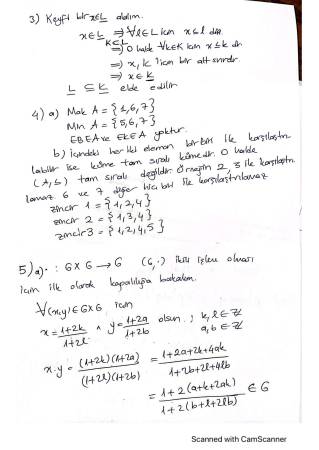 3) Keyfi bir x∈L alalım.
x∈L ⇒ ∀l∈L için x≤l dır.
K⊂L ⇒ O halde ∀k∈K için x≤k dır
⇒ x, K için bir alt sınırdır.
⇒ x∈K
L ⊆ K elde edilir
4) a) Mak A = {1,6,7}
Min A = {5,6,7}
EBEA ve EKEA yoktur.
b) İçindeki her iki eleman birbiri ile karşılaştırı
labilir ise küme tam sıralı kümedir. O halde
(A,≤) tam sıralı değildir. Örneğin 2, 3 ile karşılaştırı
lamaz 6 ve 7 diğer hiç biri ile karşılaştırılamaz
zincir 1 = {1,2,4}
zincir 2 = {1,3,4}
zincir 3 = {1,2,4,5}
5) a) · : G×G → G (G,·) ikili işlem olması
için ilk olarak kapalılığa bakalım.
∀(x,y)∈G×G için
x = 1+2k / 1+2l ∧ y = 1+2a / 1+2b olsun. ; k,l∈Z a,b∈Z
x·y = (1+2k)(1+2a) / (1+2l)(1+2b) = 1+2a+2k+4ak / 1+2b+2l+4lb
= 1+2(a+k+2ak) / 1+2(b+l+2lb) ∈ G
Scanned with CamScanner